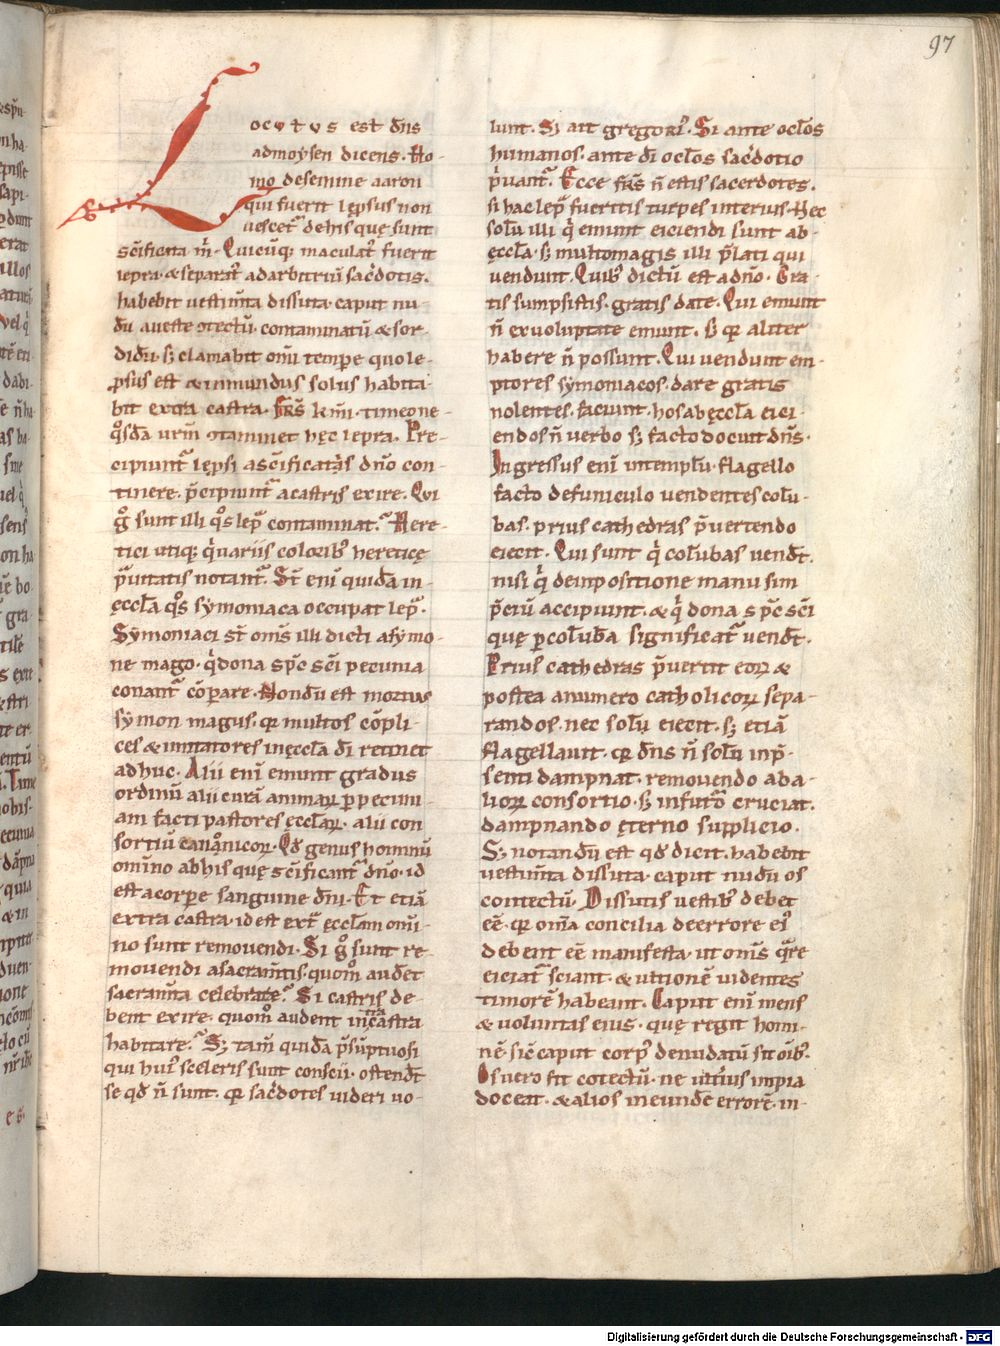 97
Locutus est dn̄s
admoysen dicens. Ho-
mo desemine aaron
qui fuerit lępsus non
uescet᷑ dehis quę sunt
sc̄ificata m̄. Quicūq; maculat᷑ fuerit
lepra. & separat᷑ adarbitriū sac̄dotis.
habebit uestim̄ta dissuta. caput nu-
dū. aueste ↄtectū. contaminatū & sor-
didū. s; clamabit om̄i tempore quo le-
psus est & inmundus solus habita-
bit extra castra. Fr̄s km̄i. timeo ne
q̊sdā urm̄ ↄtaminet hęc lepra. Pre-
cipiunt᷑ lępsi a sc̄ificatis dn̄o con-
tinere. p̄cipiunt᷑ acastris exire. Qui
g̊ sunt illi q̊s lep̄ contaminat.᷑ Here-
tici utiq; q̇ uariis colorib; heretice
p̄uitatis notant᷑. St̄ eni quidā in
ęccl̄a q̊s symoniaca occupat lep̄.
Symoniaci st̄ om̄s illi dicti asymo-
ne mago. q̇ dona sp̄c sc̄i pecunia
conant᷑ cōparare. Nondū est mortuus
symon magus. qr multos cōpli-
ces & imitatores inęccl̄a dī retinet
adhuc. Alii eni emunt gradus
ordinū alii curā animaꝝ ꝑ pecuni-
am facti pastores ęccl̄aꝝ. alii con
sortiū canonicoꝝ. Qd̄ genus hominū
omīno abhis quę sc̄ificant᷑ dn̄o. id
est acorpore sanguine dn̄i. Et etiā
extra castra. id est ext̄ ęccl̄am omī-
no sunt remouendi. Si g̊ sunt re-
mouendi asacram̄tis. quom̊ audet
sacram̄ta celebrare.᷑ Si castris de-
bent exire. quom̊ audent intra castra
habitare.᷑ S; tam̄ quidā p̄sūptuosi
qui hui᷒ sceleris sunt conscii. ostendt̄
se qd̄ n̄ sunt. qr sac̄dotes uideri uo-
lunt. Si ait gregori᷒. Si ante ocl̄os
humanos. ante dī ocl̄os sac̄dotio
ṗuant᷑. Ecce fr̄s n̄ estis sacerdotes.
si hac lep̄ fueritis turpes interius. Nec
solū illi q̇ emunt eiciendi sunt ab
ęccl̄a. s; multomagis illi p̄lati qui
uendunt. Quib; dictū est adn̄o. Gra-
tis sumpsistis. gratis date. Qui emunt
n̄ exuoluptate emunt. s; qr aliter
habere n̄ possunt. Qui uendunt em-
ptores symoniacos. dare gratis
nolentes. faciunt. hos abęccl̄a eici-
endos n̄ uerbo s; facto docuit dn̄s.
Ingressus eni intemplū. flagello
facto defuniculo uendentes colū-
bas. prius cathedras p̄uertendo
eiecit. Qui sunt q̇ colūbas uendt̄.
nisi q̇ deinpositione manū sim
p̄ciū accipiunt. & q̇ dona sp̄c sc̄i
quę ꝑ colūba significat᷑ uendt̄.
Prius cathedras p̄uertit eoꝝ &
postea anumero catholicoꝝ sepa-
randos. nec solū eiecit. s; etiā
flagellauit. qr dn̄s n̄ solū inp̄-
senti dampnat. remouendo aba-
lioꝝ consortio. s; infuturo cruciat.
dampnando ęterno supplicio.
S; notandū est qd̄ dicit. habebit
uestim̄ta dissuta. caput nudū os
contectū. Dissutis uestib; debet
eē. qr om̄a concilia deerrore ei᷒
debent eē manifesta. ut om̄s quare
eiciat᷑ sciant. & ultionē uidentes
timorē habeant. Caput eni mens
& uoluntas eius. quę regit homi-
nē. sic̄ caput corp᷒ denudatū sit oīb;.
Os uero sit cotectū. ne ulti᷒us impia
doceat. & alios ineundē errorē. in-
Digitalisierung gefördert durch die Deutsche Forschungsgemeinschaft - DFG